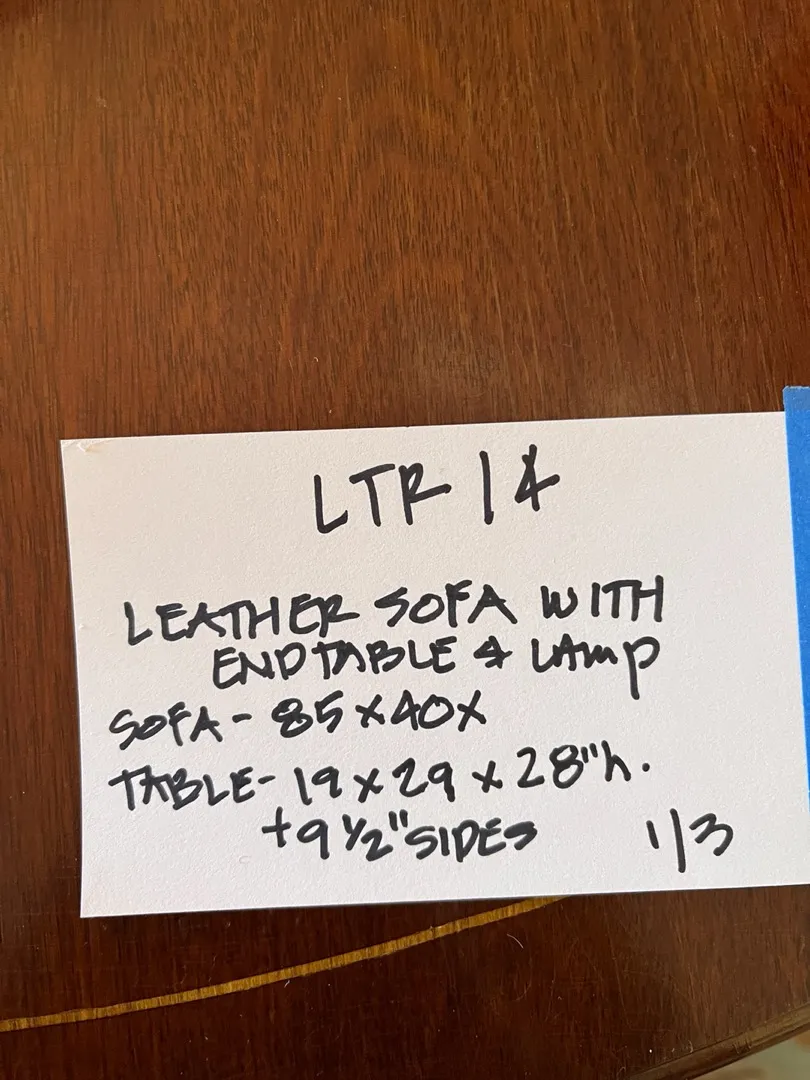 LTR 14
LEATHER SOFA WITH
END TABLE & LAMP
SOFA - 85 x 40 x
TABLE - 19 x 29 x 28" h.
+ 9 1/2" SIDES
1/3